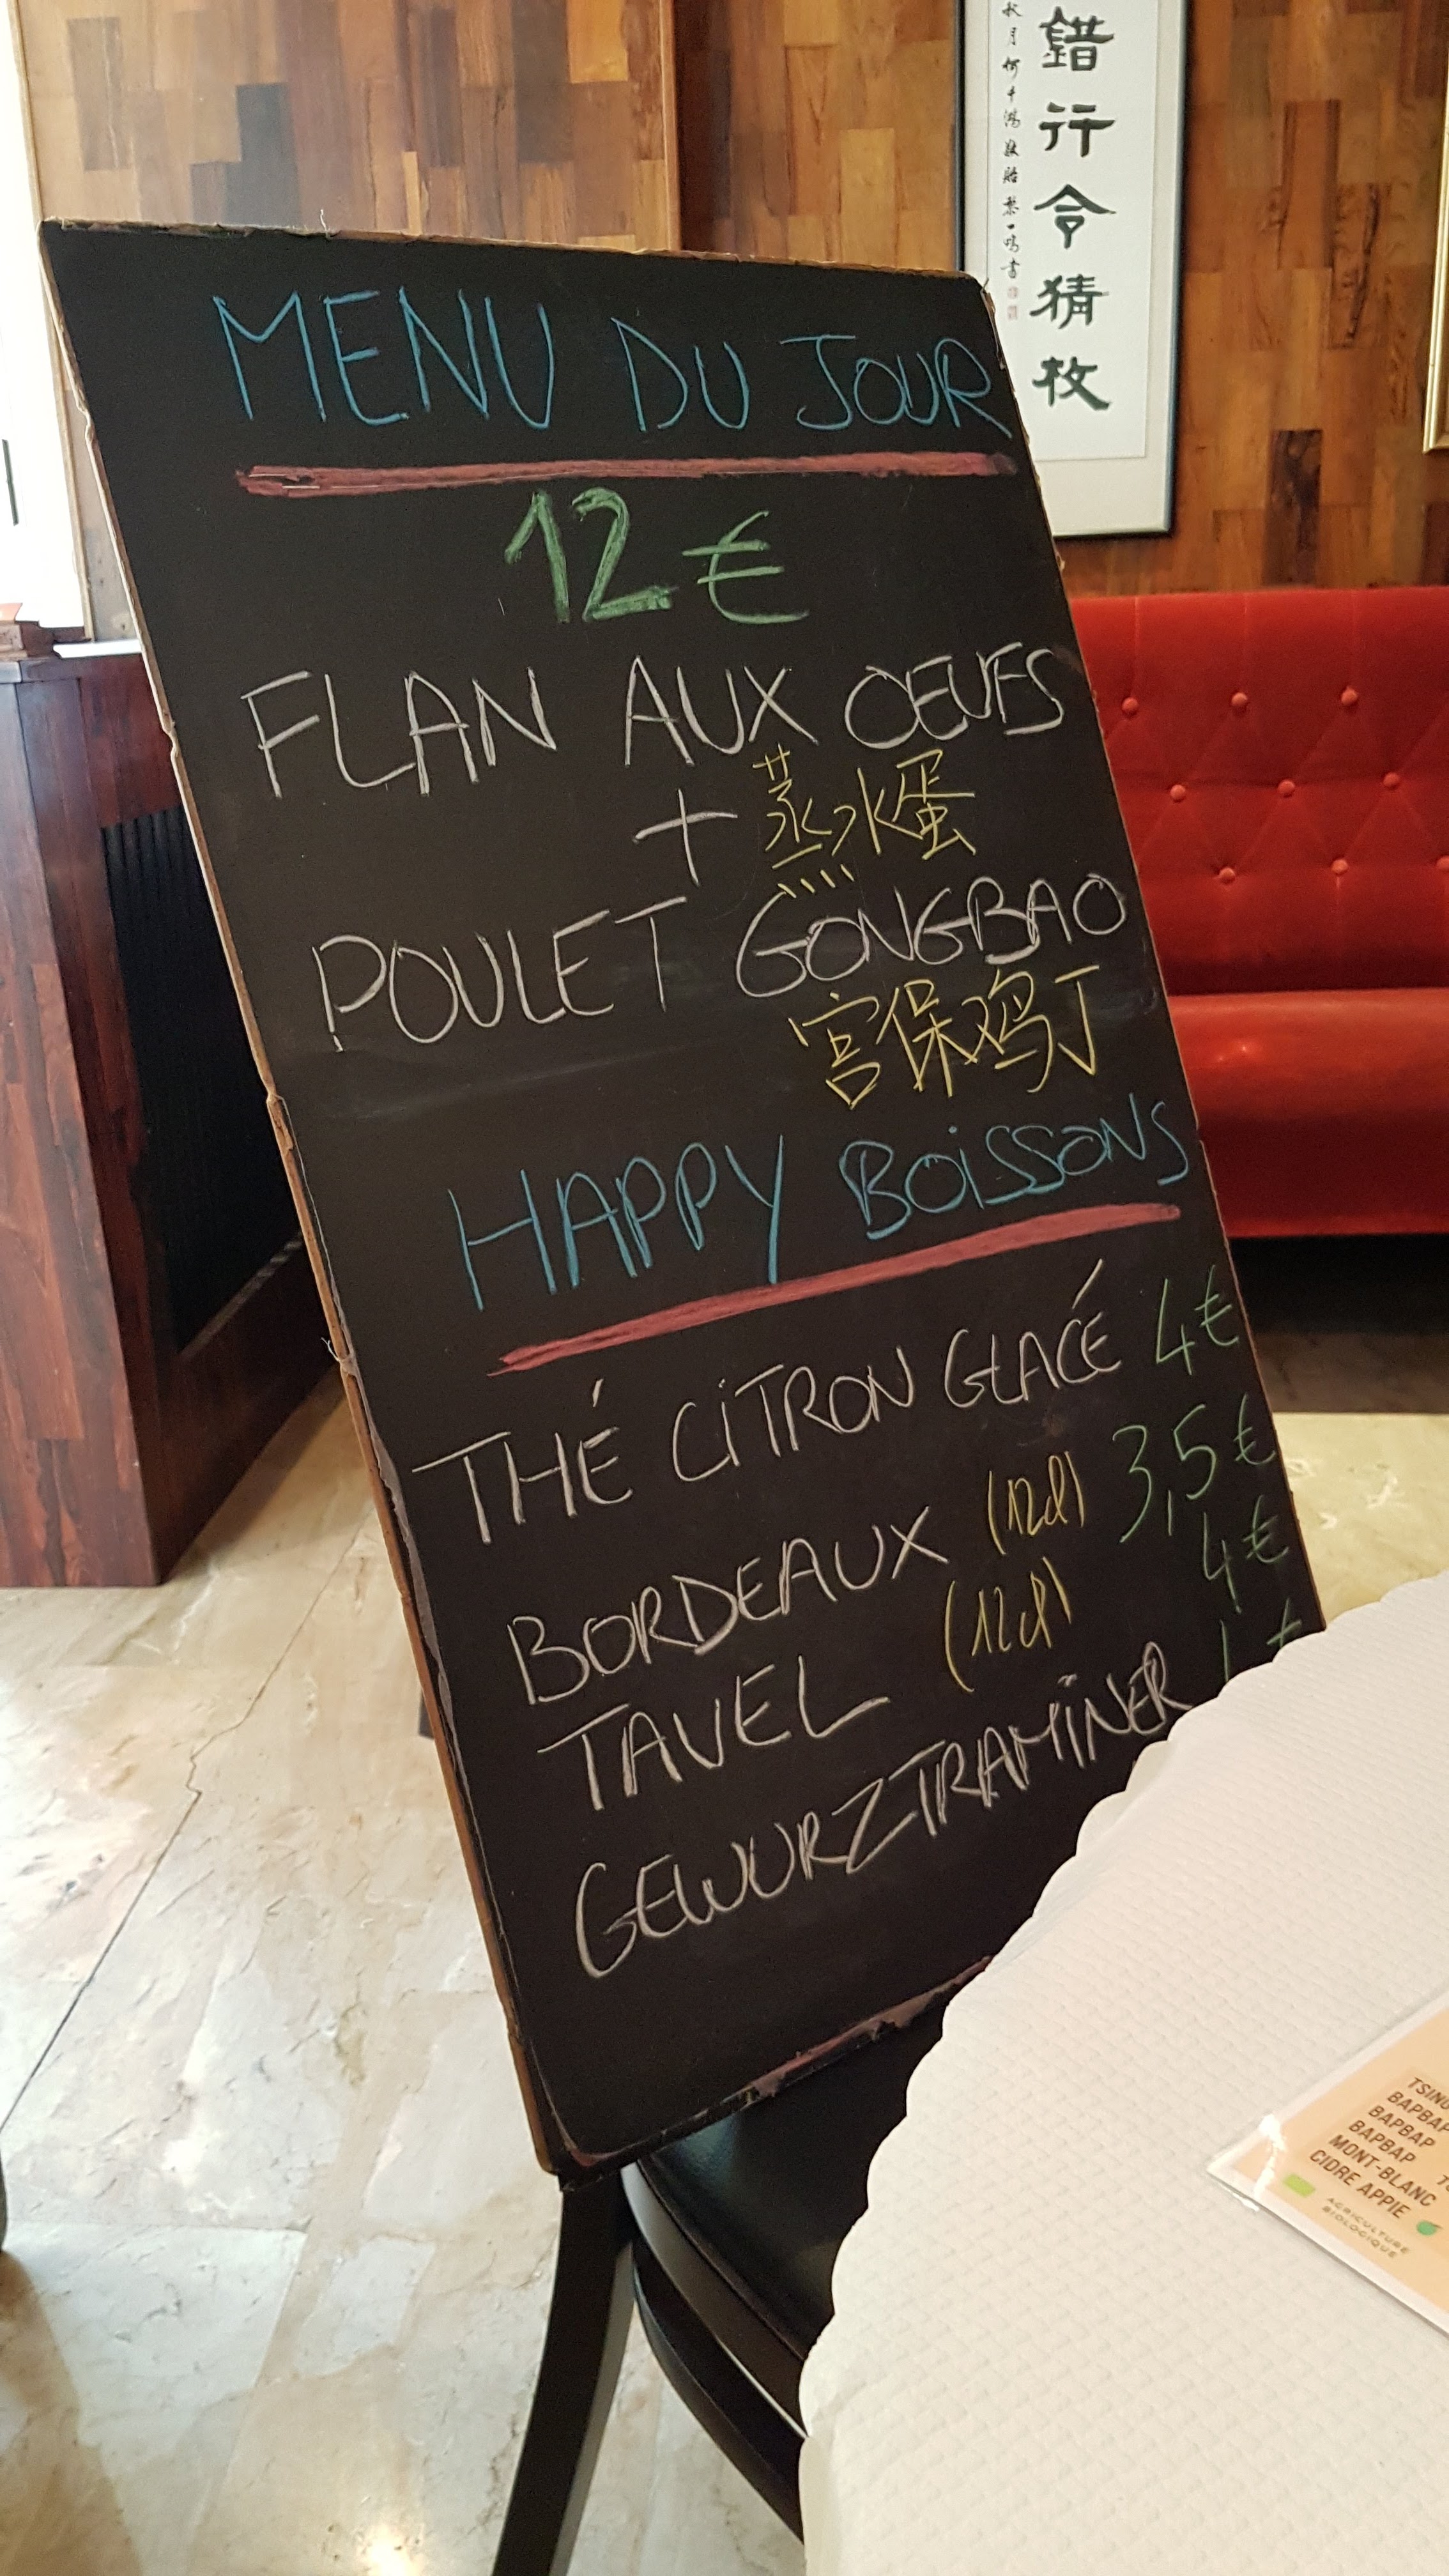 MENU DU JOUR
12€
FLAN AUX OEUFS
+ 蒸水蛋
POULET GONGBAO
宫保鸡丁
HAPPY BOISSONS
THÉ CITRON GLACÉ 4€
BORDEAUX (12cl) 3,5€
TAVEL (12cl) 4€
GEWURZTRAMINER
錯行令猜枚
TSING
BAPBAP
BAPBAP
BAPBAP
MONT-BLANC
CIDRE APPIE
AGRICULTURE
BIOLOGIQUE